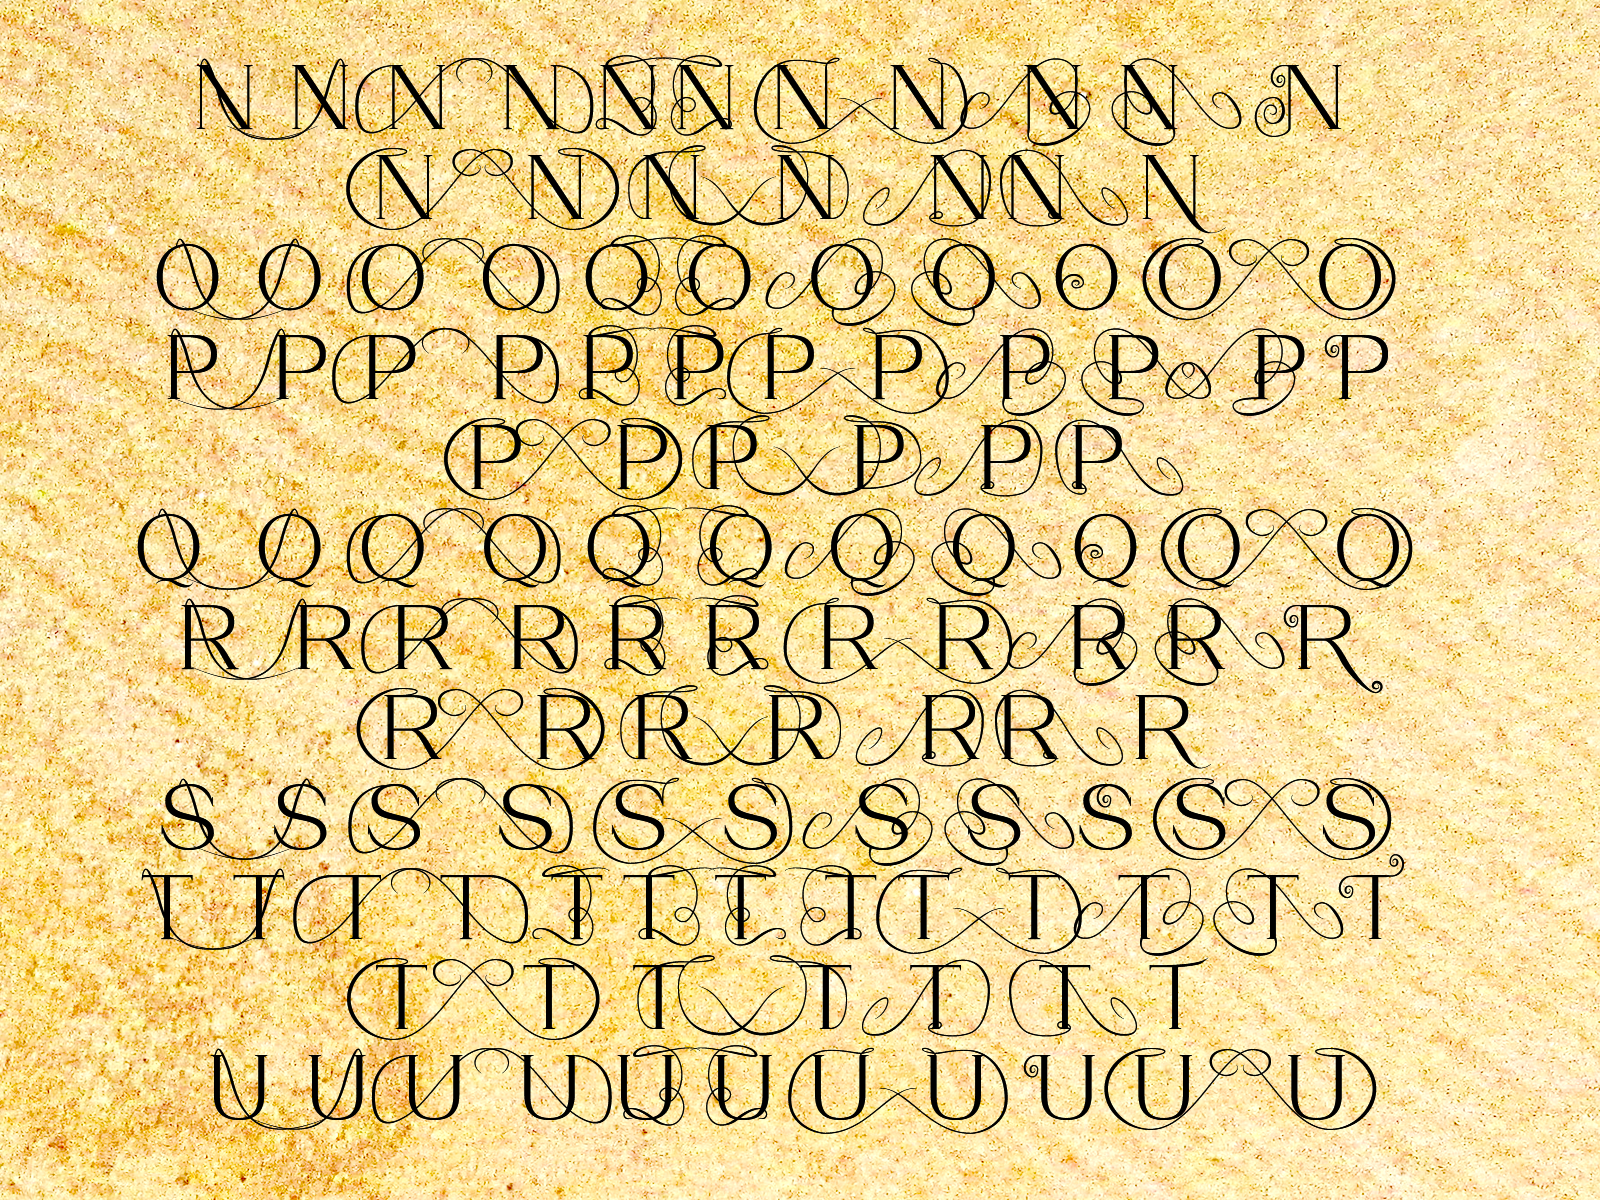 N N N N N N N N N N N
N N N N N N N
O O O O O O O O O O O
P P P P P P P P P P P P
P P P P P P
Q Q Q Q Q Q Q Q Q Q Q
R R R R R R R R R R R
R R R R R R R
S S S S S S S S S S S
T T T T T T T T T T T T T
T T T T T T T
U U U U U U U U U U U